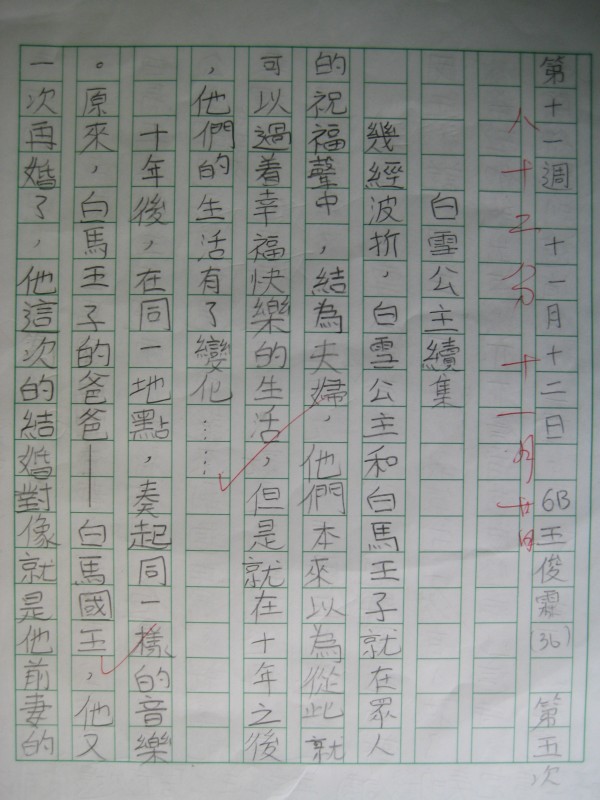 第十一週　十一月十二日　6B王俊霖(36)　第五次
八十三分　十一月廿日
白雪公主續集
幾經波折，白雪公主和白馬王子就在眾人
的祝福聲中，結為夫婦，他們本來以為從此就
可以過着幸福快樂的生活，但是就在十年之後
，他們的生活有了變化……
十年後，在同一地點，奏起同一樣的音樂
。原來，白馬王子的爸爸——白馬國王，他又
一次再婚了，他這次的結婚對像就是他前妻的